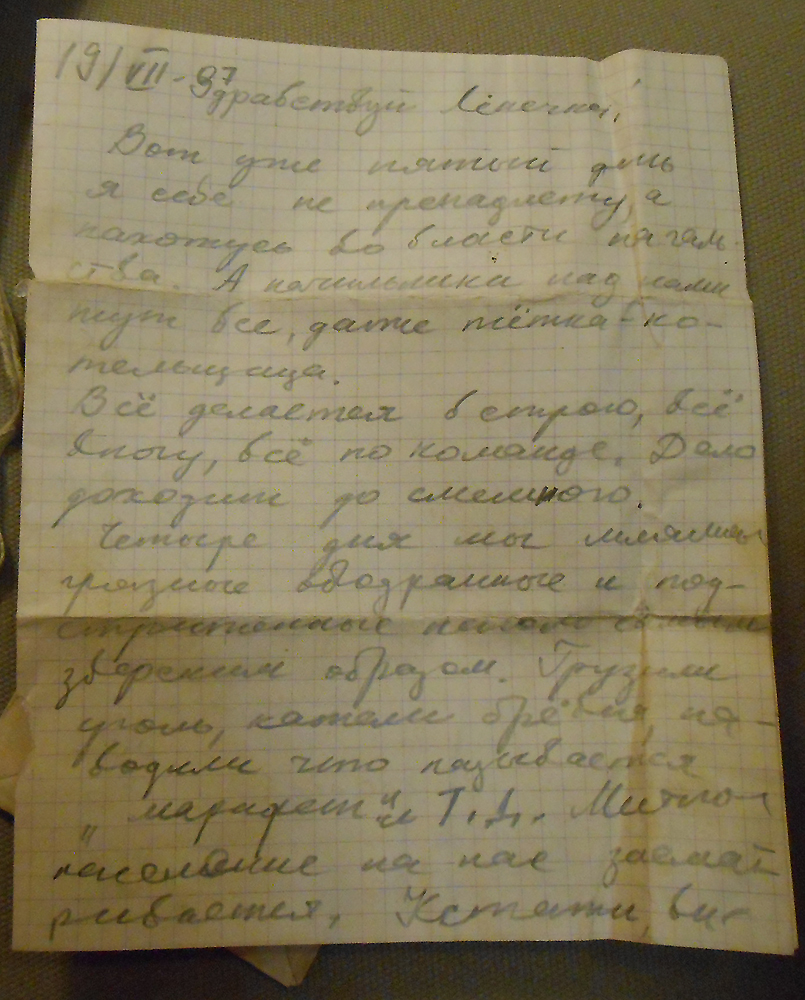 19/VII-97
Здравствуй Лёнечка!
Вот уже пятый день
я себе не пренадлежу, а
нахожусь во власти началь-
ства. А начильники над нами
тут все, даже тётка-ко-
тельщица.
Всё делается в строю, всё
в ногу, всё по команде. Дело
доходит до смешного.
Четыре дня мы
грязные ободранные и под-
стриженные
зверским образом. Грузили
уголь, катали брёвна, на-
водили что называется
„марафет" и т.д. Митное
население на нас засмат-
ривается. Кстати, вы-